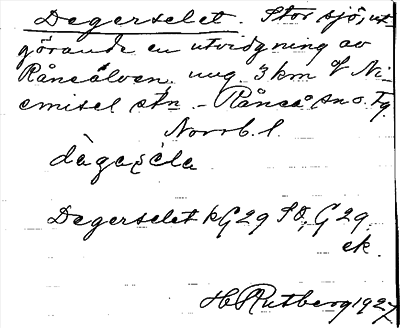 Degerselet. Stor sjö, ut-
görande en utvidgning av
Råneälven. ung. 3 km V Ni-
emisel stn. - Råneå sn o. tg.
Norrb. l.
Degerselet kG29 SO, G29,
ek.
H Rutberg 1927